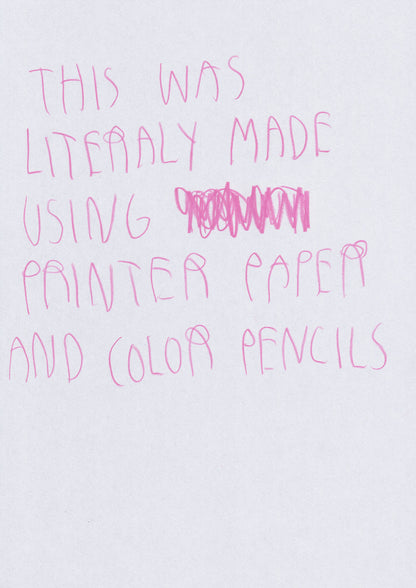 THIS WAS
LITERALY MADE
USING
PRINTER PAPER
AND COLOR PENCILS